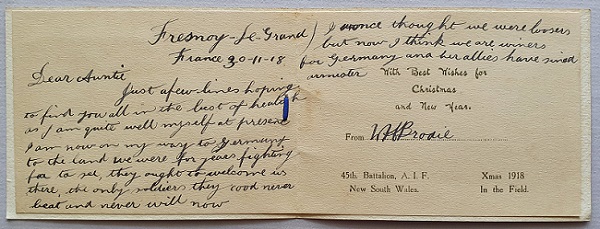 Fresnoy-Le-Grand
France 30-11-18
Dear Auntie
Just a few lines hoping
to find you all in the best of health
as I am quite well myself at present
I am now on my way to Germany
to the land we were for years fighting
for to see, they ought to welcome us
there, the only soldiers they cood never
beat and never will now
I once thought we were loosers
but now I think we are winers
for Germany and her allies have sined
armister
With Best Wishes for
Christmas
and New Year.
From WHBrodie
45th. Battalion, A. I. F.
New South Wales.
Xmas 1918
In the Field.